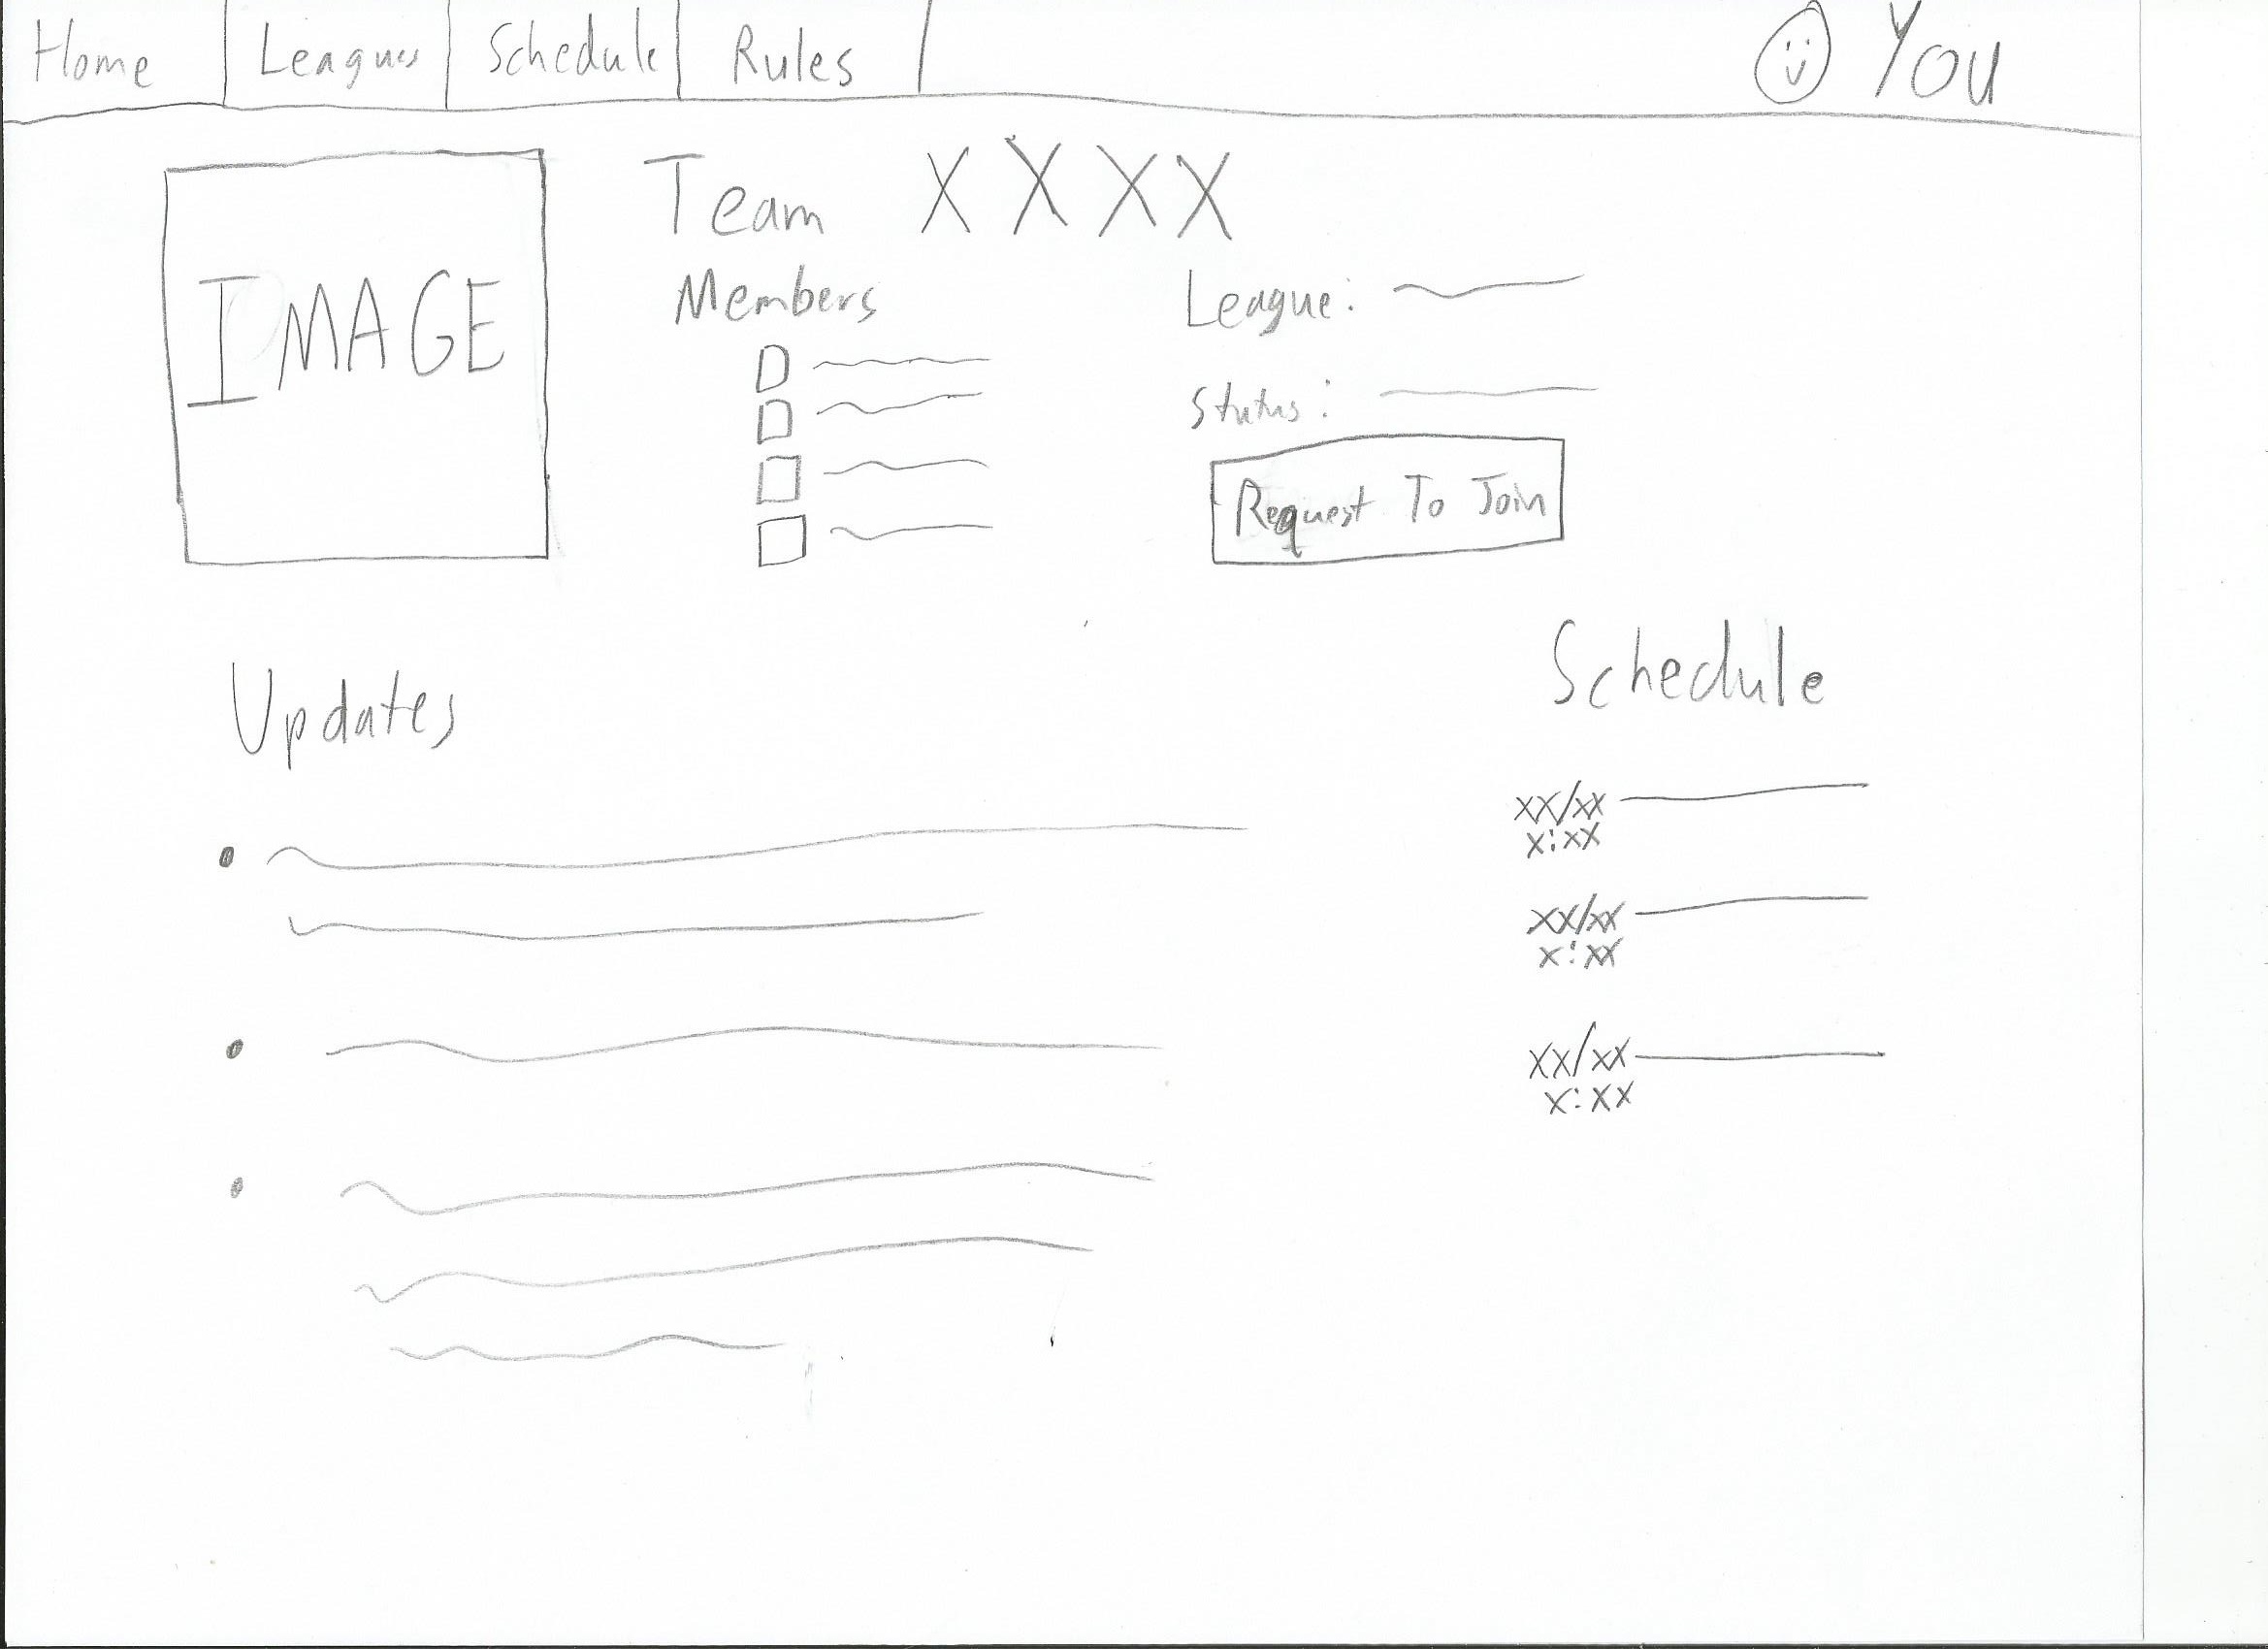 Home Leagues Schedule Rules You
Team XXXX
IMAGE
Members
League:
Status:
Request To Join
Updates
Schedule
xx/xx
x:xx
xx/xx
x:xx
xx/xx
x:xx